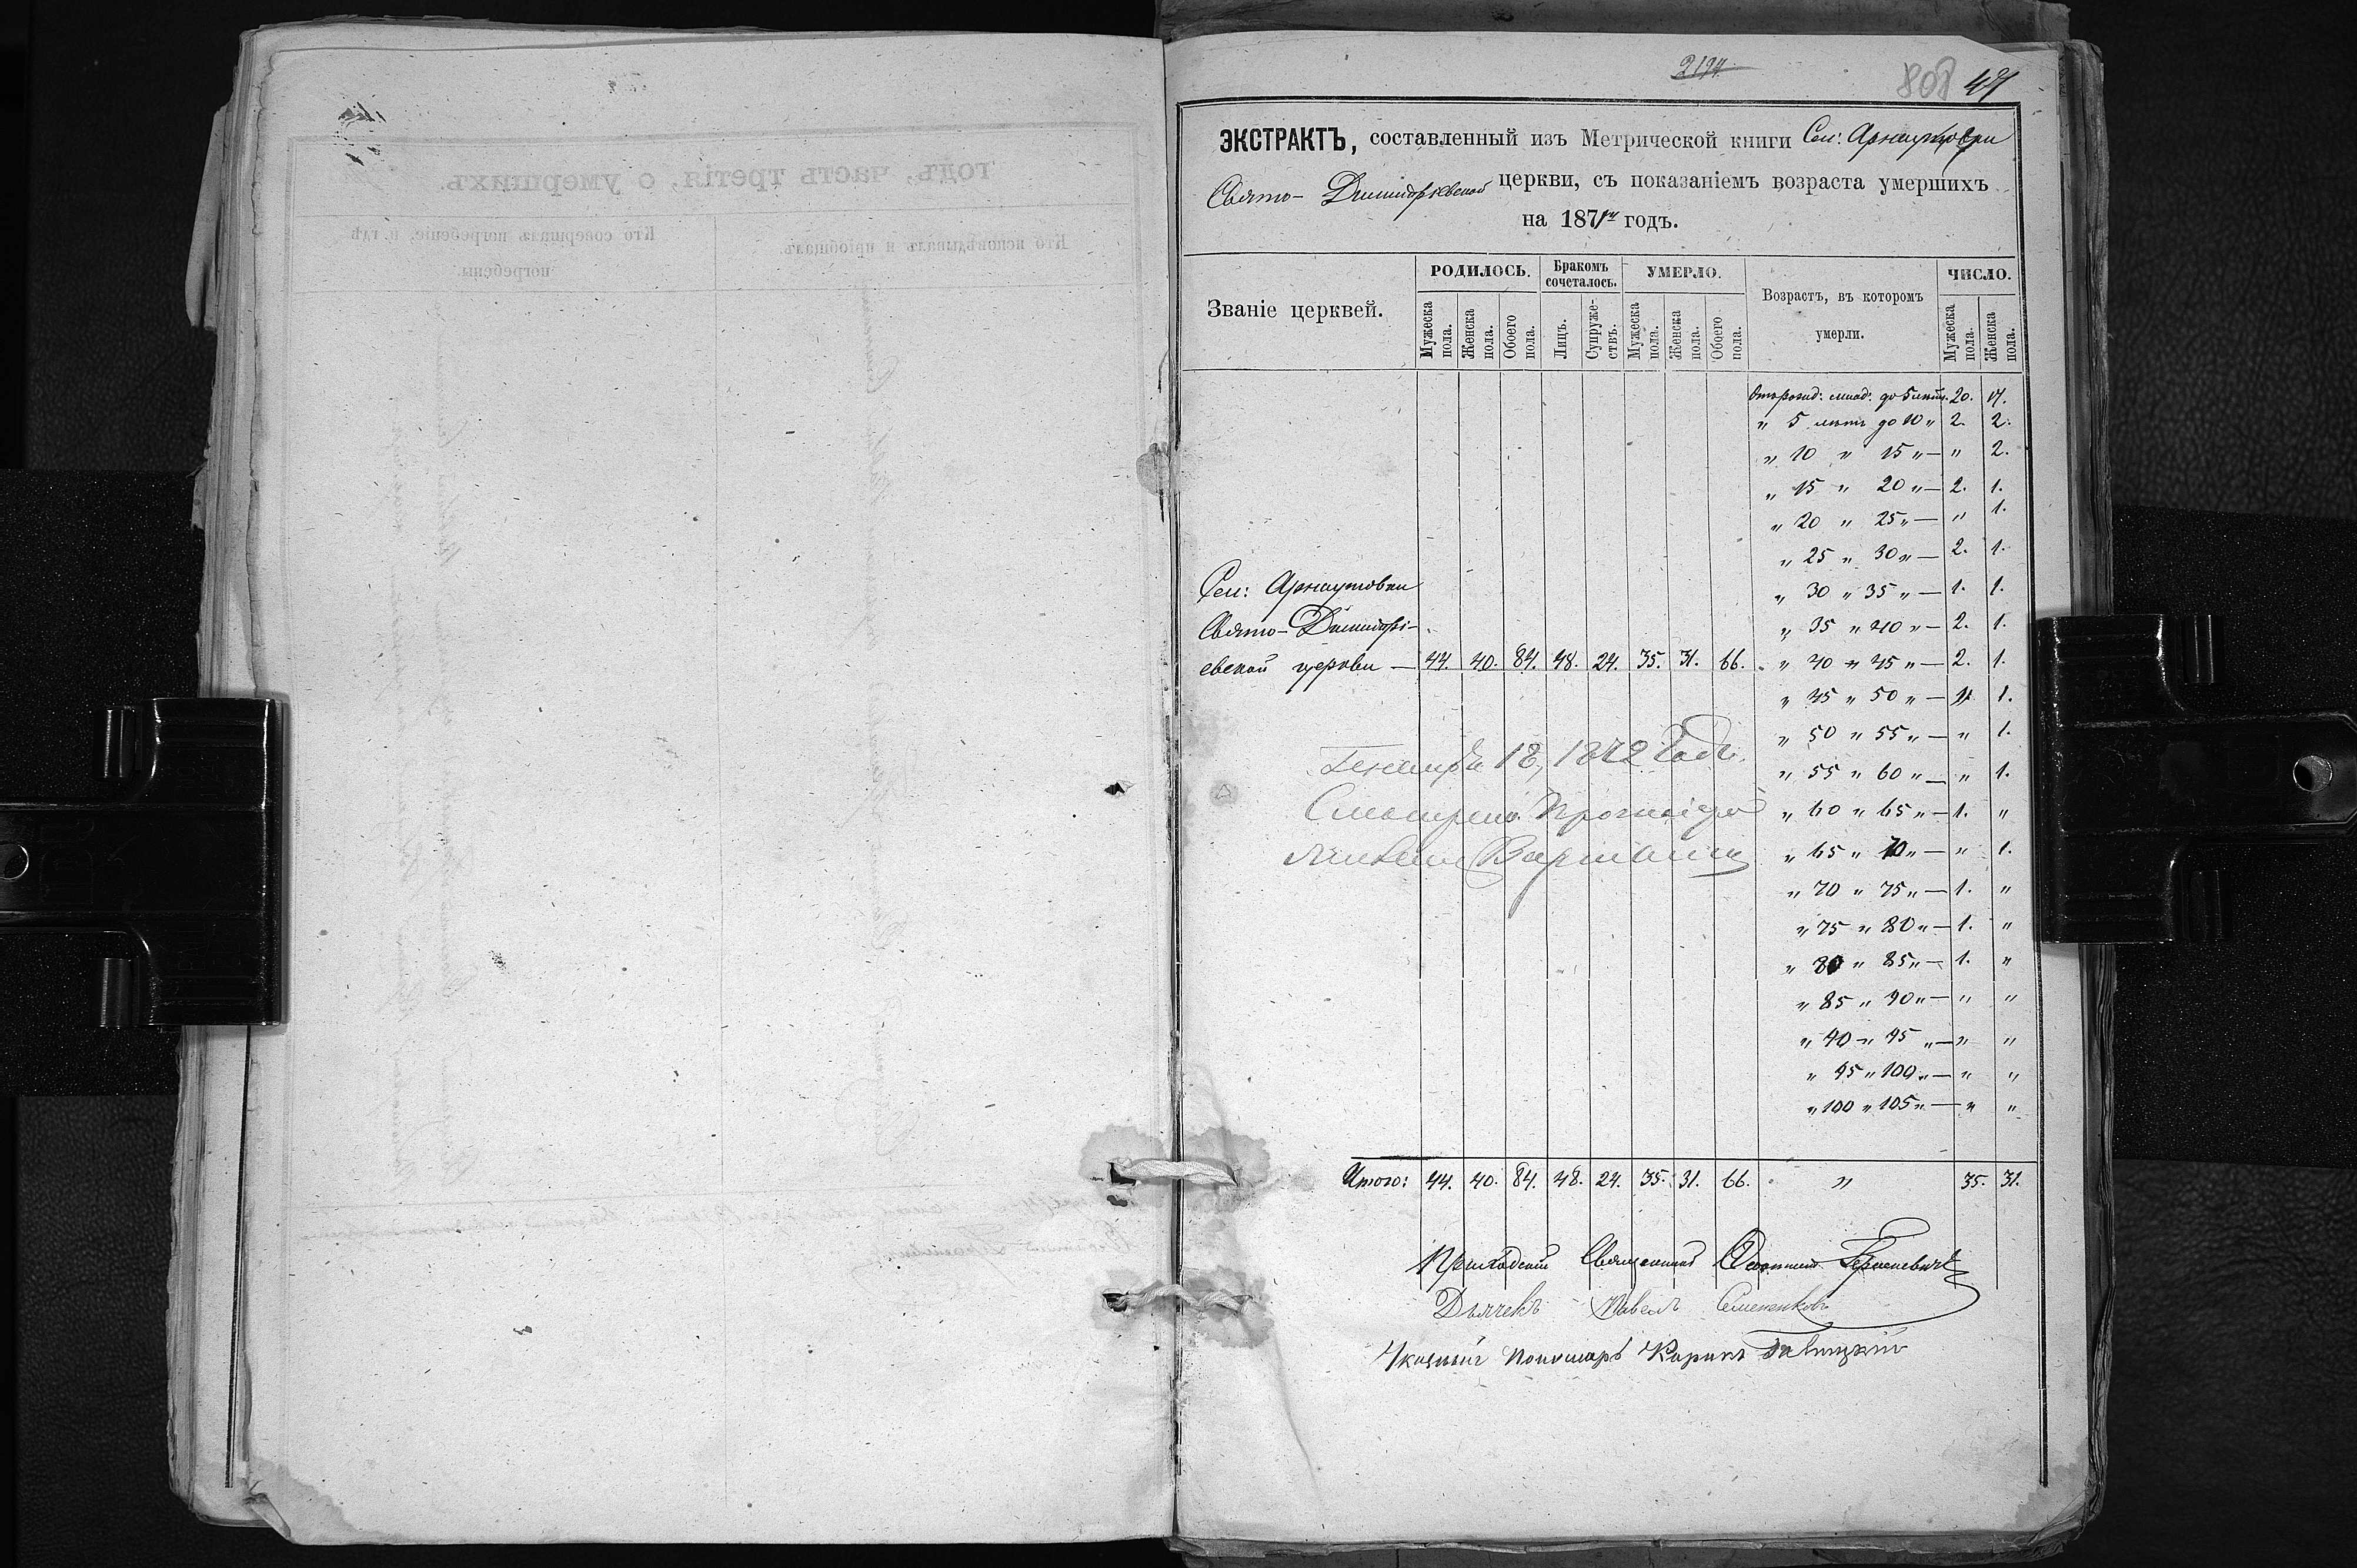 2194
808 41
ЭКСТРАКТЪ, составленный изъ Метрической книги Сел: Арнаутовки
Свято-Димитріевской церкви, съ показаніемъ возраста умершихъ
на 1871й годъ.
Званіе церквей. РОДИЛОСЬ. Бракомъ сочеталось. УМЕРЛО. Возрастъ, въ которомъ умерли. ЧИСЛО.
Мужеска пола. Женска пола. Обоего пола. Лицъ. Супружествъ. Мужеска пола. Женска пола. Обоего пола. Мужеска пола. Женска пола.
Отъ рожд: млад: до 5 лѣтъ. 20. 17.
" 5 лѣтъ до 10 " 2. 2.
" 10 " 15 " — " 2.
" 15 " 20 " — 2. 1.
" 20 " 25 " — " 1.
" 25 " 30 " — 2. 1.
" 30 " 35 " — 1. 1.
" 35 " 40 " — 2. 1.
" 40 " 45 " — 2. 1.
" 45 " 50 " — " 1.
" 50 " 55 " — " 1.
" 55 " 60 " — " 1.
" 60 " 65 " — 1. "
" 65 " 70 " — " 1.
" 70 " 75 " — 1. "
" 75 " 80 " — 1. "
" 80 " 85 " — 1. "
" 85 " 90 " — " "
" 90 " 95 " — " "
" 95 " 100 " — " "
" 100 " 105 " — " "
Сел: Арнаутовки
Свято-Димитрі-
евской церкви — 44. 40. 84. 48. 24. 35. 31. 66.
Генваря 18, 1872 года.
Смотрелъ
Итого: 44. 40. 84. 48. 24. 35. 31. 66. " 35. 31.
Приходскій Священникъ
Дьячекъ Павелъ Семененковъ
Указный пономарь
годъ, часть третія, о умершихъ.
Кто исповѣдывалъ и пріобщалъ.
Кто совершалъ погребеніе, и гдѣ
погребены.